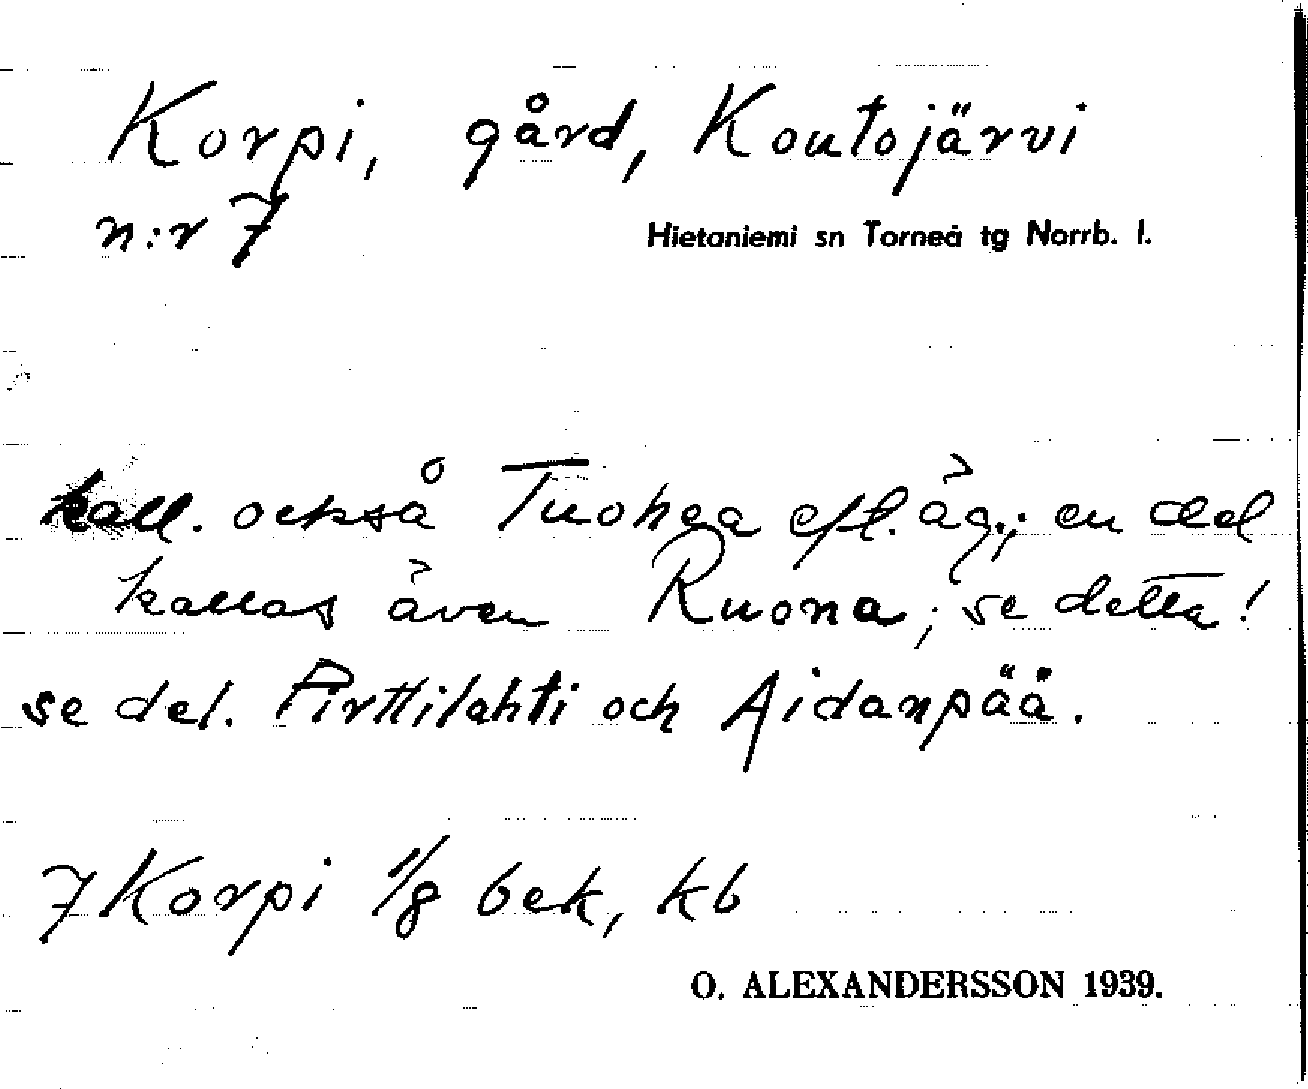 Korpi, gård, Koutojärvi
n:r 7
Hietaniemi sn Torneå tg Norrb. l.
kall. också Tuohea efl. äg.; en del
kallas även Ruona; se detta!
se del. Pirttilahti och Aidanpää.
7 Korpi 1/8 bek, kb
O. ALEXANDERSSON 1939.